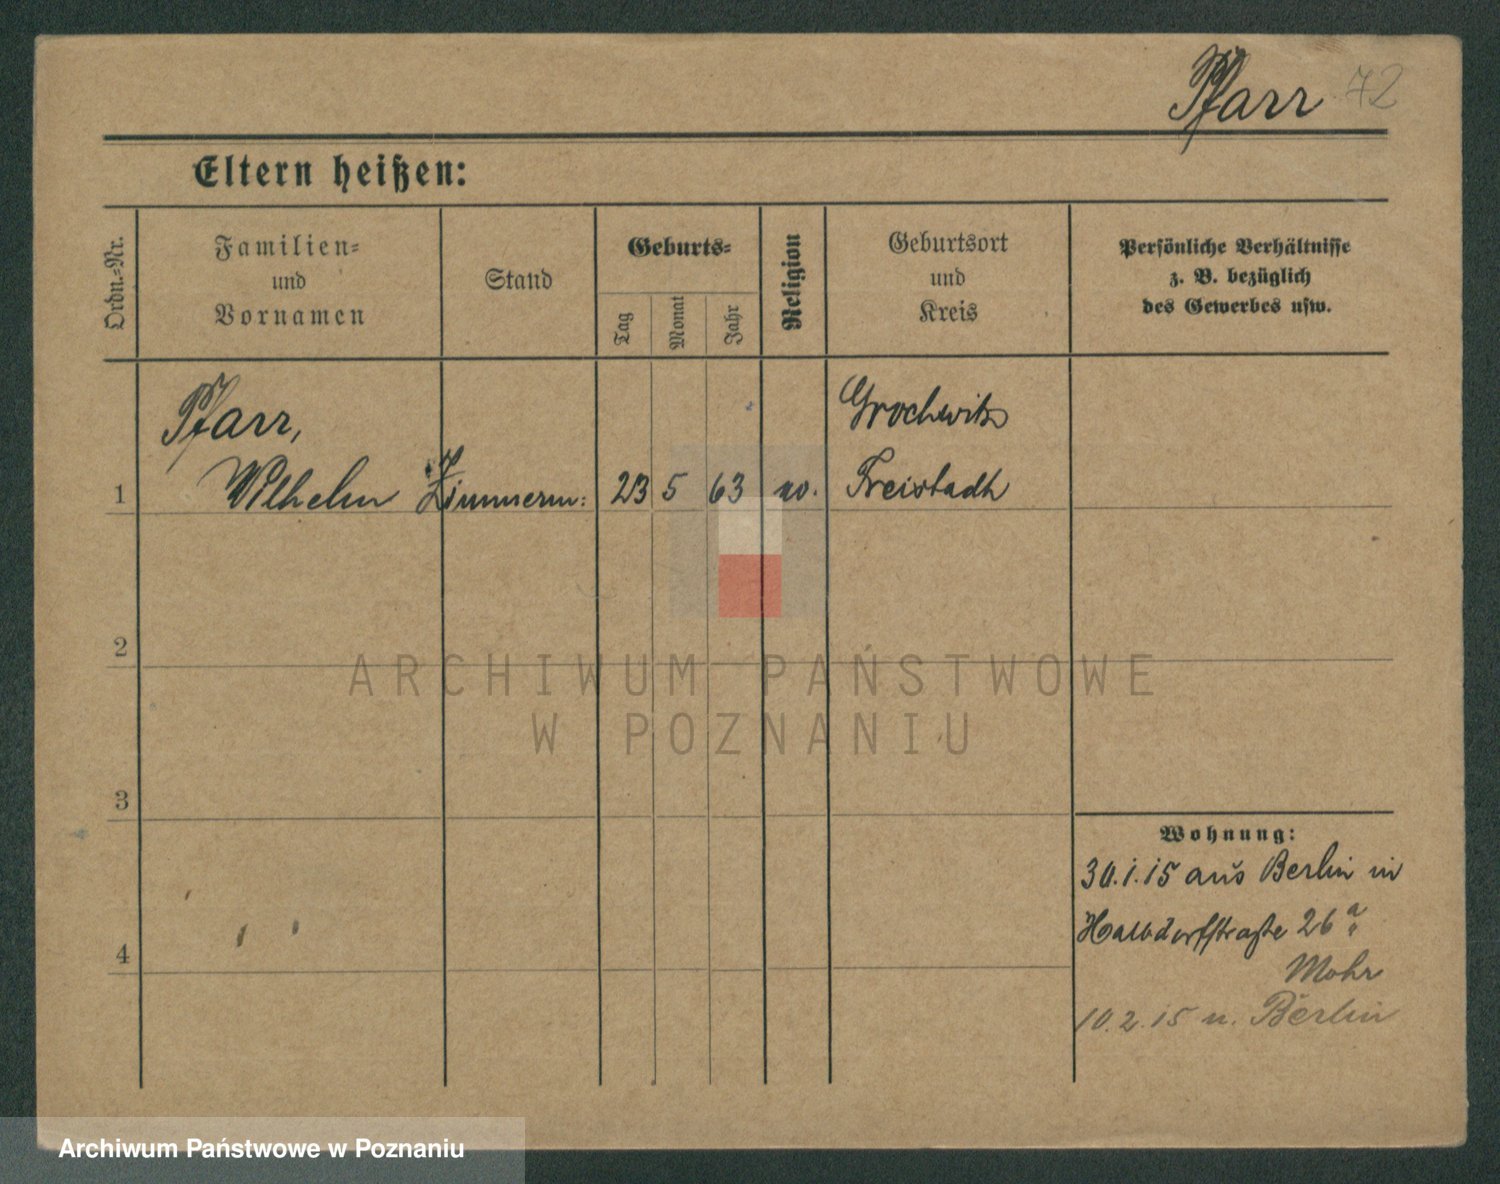 Pfarr 72
Eltern heißen:
Ordn.-Nr.
Familien-
und
Vornamen
Stand
Geburts-
Tag
Monat
Jahr
Religion
Geburtsort
und
Kreis
Persönliche Verhältnisse
z. B. bezüglich
des Gewerbes usw.
Pfarr,
Grochwitz
1 Wilhelm Zimmerm: 23 5 63 Freistadt
2
3
4
Wohnung:
30.1.15 aus Berlin in
Halbdorfstraße 26a
Mohr
10.2.15 n. Berlin
ARCHIWUM PAŃSTWOWE
W POZNANIU
Archiwum Państwowe w Poznaniu